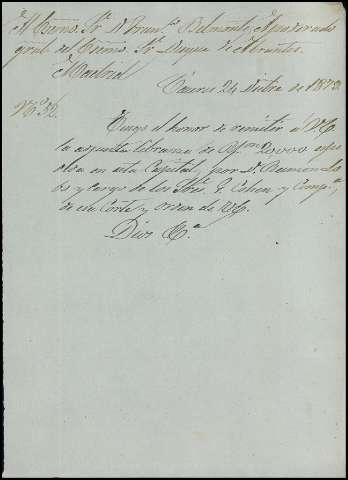 Al Excmo. Sr. D. Franco. Belmonte, Apoderado
gral. del Excmo. Sr. Duque de Abrantes.
Madrid
Cáceres 24 Dicbre. de 1873.
N.º 32.
Tengo el honor de remitir á V.E.
la adjunta libranza de 20000
en esta Capital, por D. Ramon
y cargo de los Sres. E. Cohen y Compa.,
de esa Corte y orden de V.E.
Dios &.a